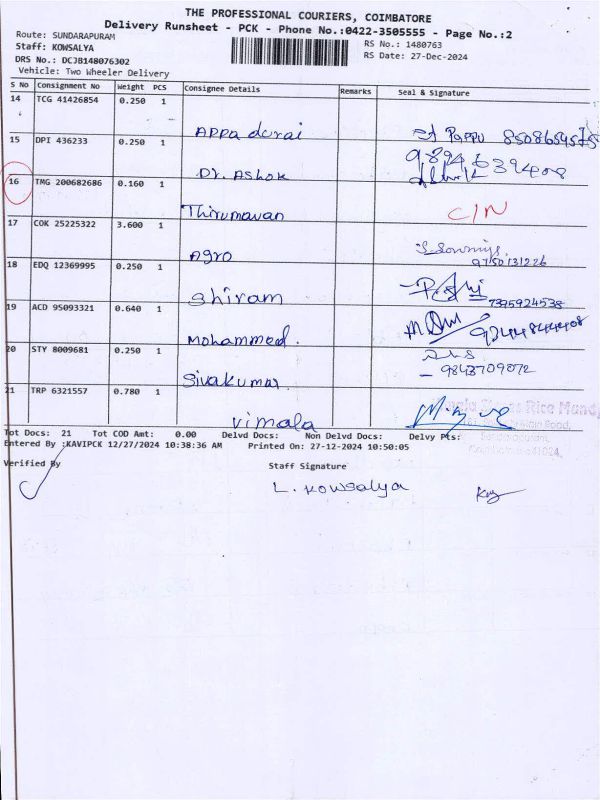 THE PROFESSIONAL COURIERS, COIMBATORE
Delivery Runsheet - PCK - Phone No.:0422-3505555 - Page No.:2
Route: SUNDARAPURAM
Staff: KOWSALYA
RS No.: 1480763
DRS No.: DCJB148076302
RS Date: 27-Dec-2024
Vehicle: Two Wheeler Delivery
S No Consignment No Weight PCS Consignee Details Remarks Seal & Signature
14 TCG 41426854 0.250 1 Appa durai Pappu
15 DPI 436233 0.250 1 Dr. Ashok
16 TMG 200682686 0.160 1 Thirumavan C/N
17 COK 25225322 3.600 1 Agro S. Sowmiya 9750131226
18 EDQ 12369995 0.250 1 Shiram 7395924538
19 ACD 95093321 0.640 1 Mohammed.
20 STY 8009681 0.250 1 Sivakumar. 9843709072
21 TRP 6321557 0.780 1 Vimala
Tot Docs: 21 Tot COD Amt: 0.00 Delvd Docs: Non Delvd Docs: Delvy Pts:
Entered By :KAVIPCK 12/27/2024 10:38:36 AM Printed On: 27-12-2024 10:50:05
Verified By Staff Signature
L. Kowsalya